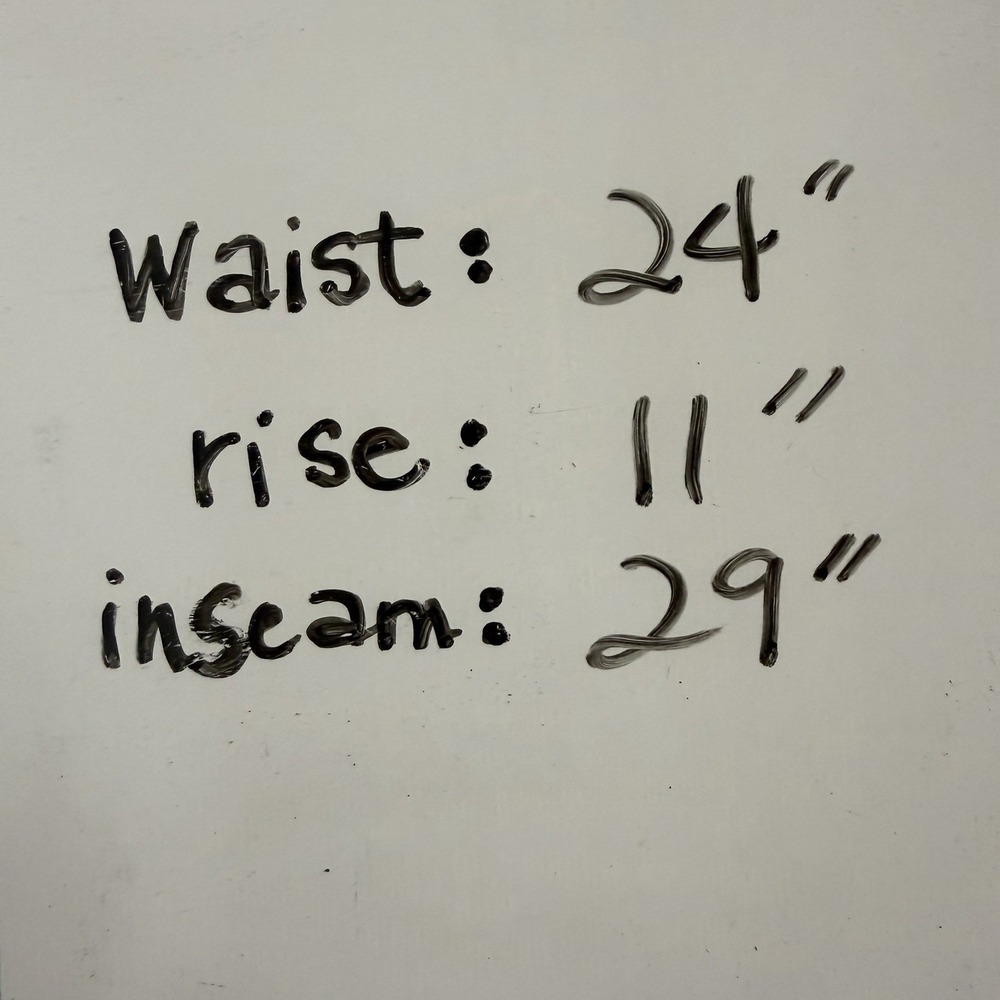 Waist: 24"
rise: 11"
inseam: 29"